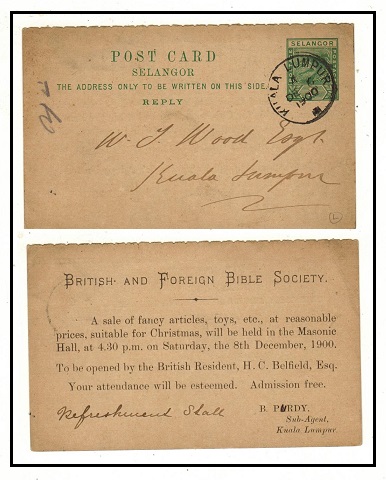 POST CARD
SELANGOR
THE ADDRESS ONLY TO BE WRITTEN ON THIS SIDE.
REPLY
SELANGOR
KUALA LUMPUR
1900
W. J. Wood Esqr
Kuala Lumpur
BRITISH AND FOREIGN BIBLE SOCIETY.
A sale of fancy articles, toys, etc., at reasonable
prices, suitable for Christmas, will be held in the Masonic
Hall, at 4.30 p.m. on Saturday, the 8th December, 1900.
To be opened by the British Resident, H. C. Belfield, Esq.
Your attendance will be esteemed. Admission free.
Refreshment Stall
B. PURDY,
Sub-Agent,
Kuala Lumpur.